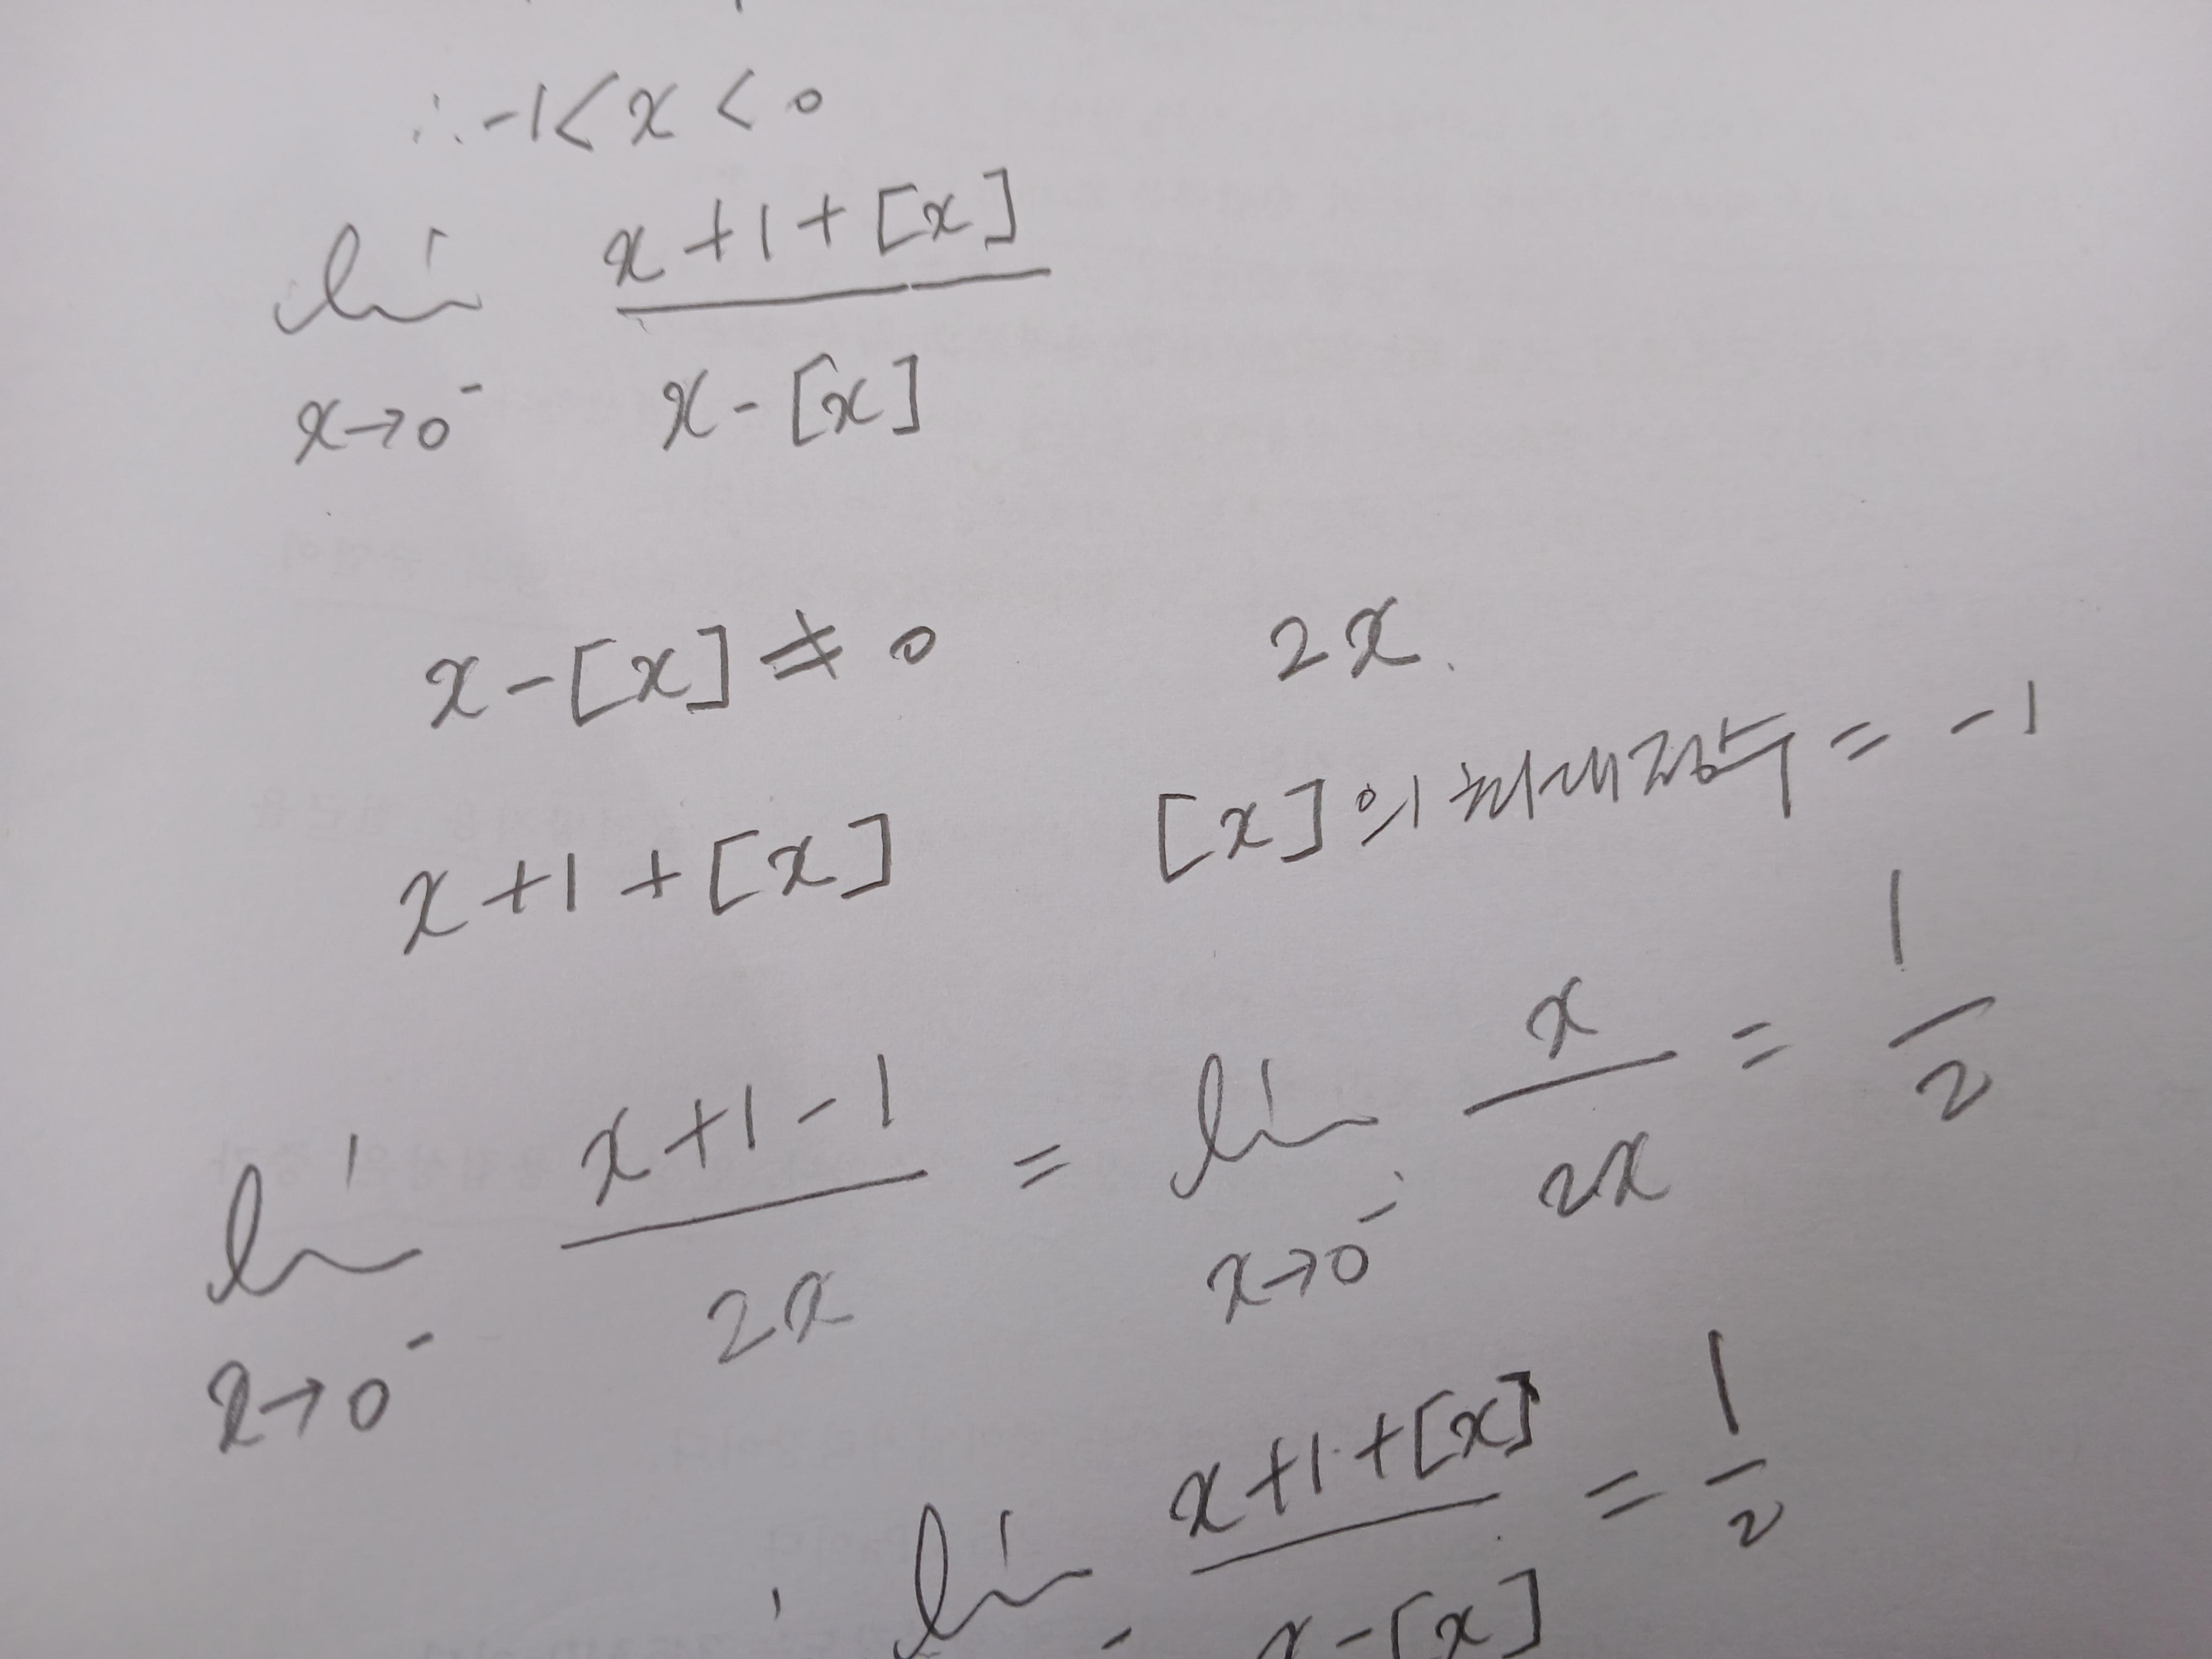 ∴ -1 < x < 0
lim x→0⁻ (x+1+[x])/(x-[x])
x-[x] ≠ 0    2x.
[x]의 최대정수 = -1
x+1+[x]
lim x→0⁻ (x+1-1)/(2x) = lim x→0⁻ x/(2x) = 1/2
lim (x+1+[x])/(x-[x]) = 1/2